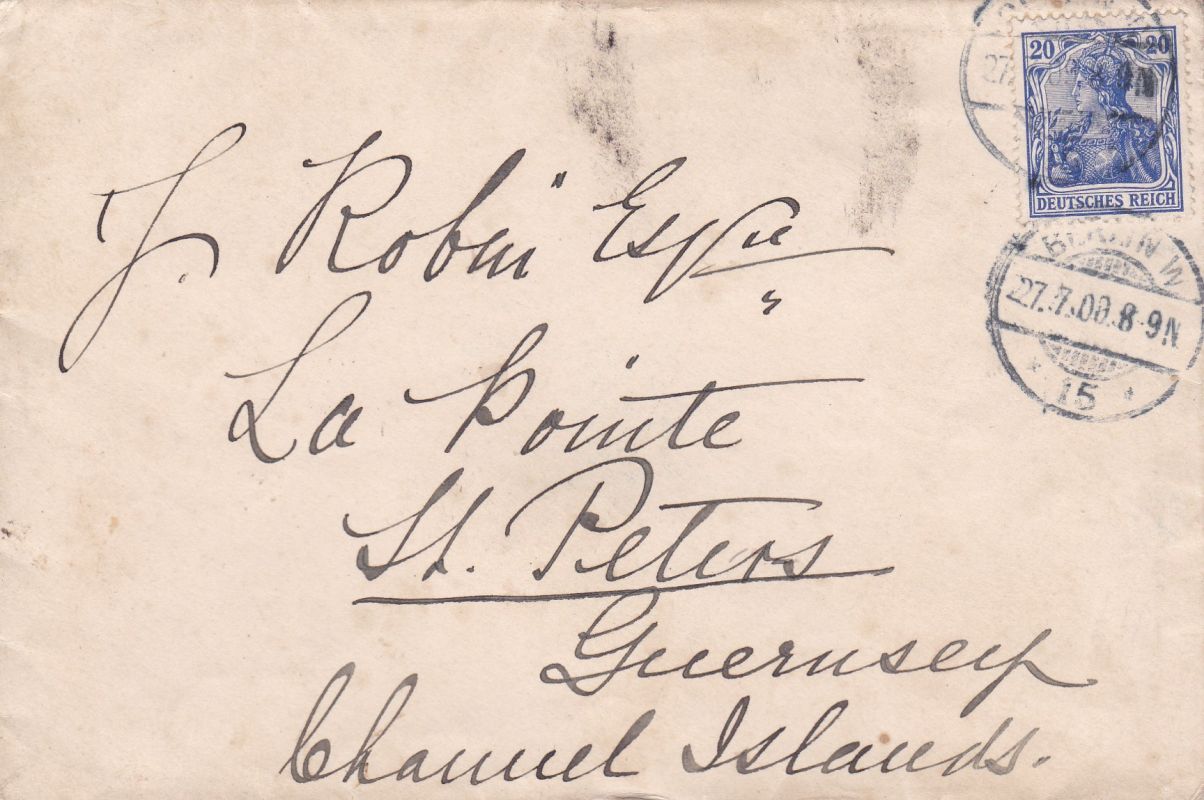 20 20
DEUTSCHES REICH
BERLIN W
27.7.09.8-9N
* 15 *
J. Robin Esqre
La Pointe
St. Peters
Guernsey
Channel Islands.